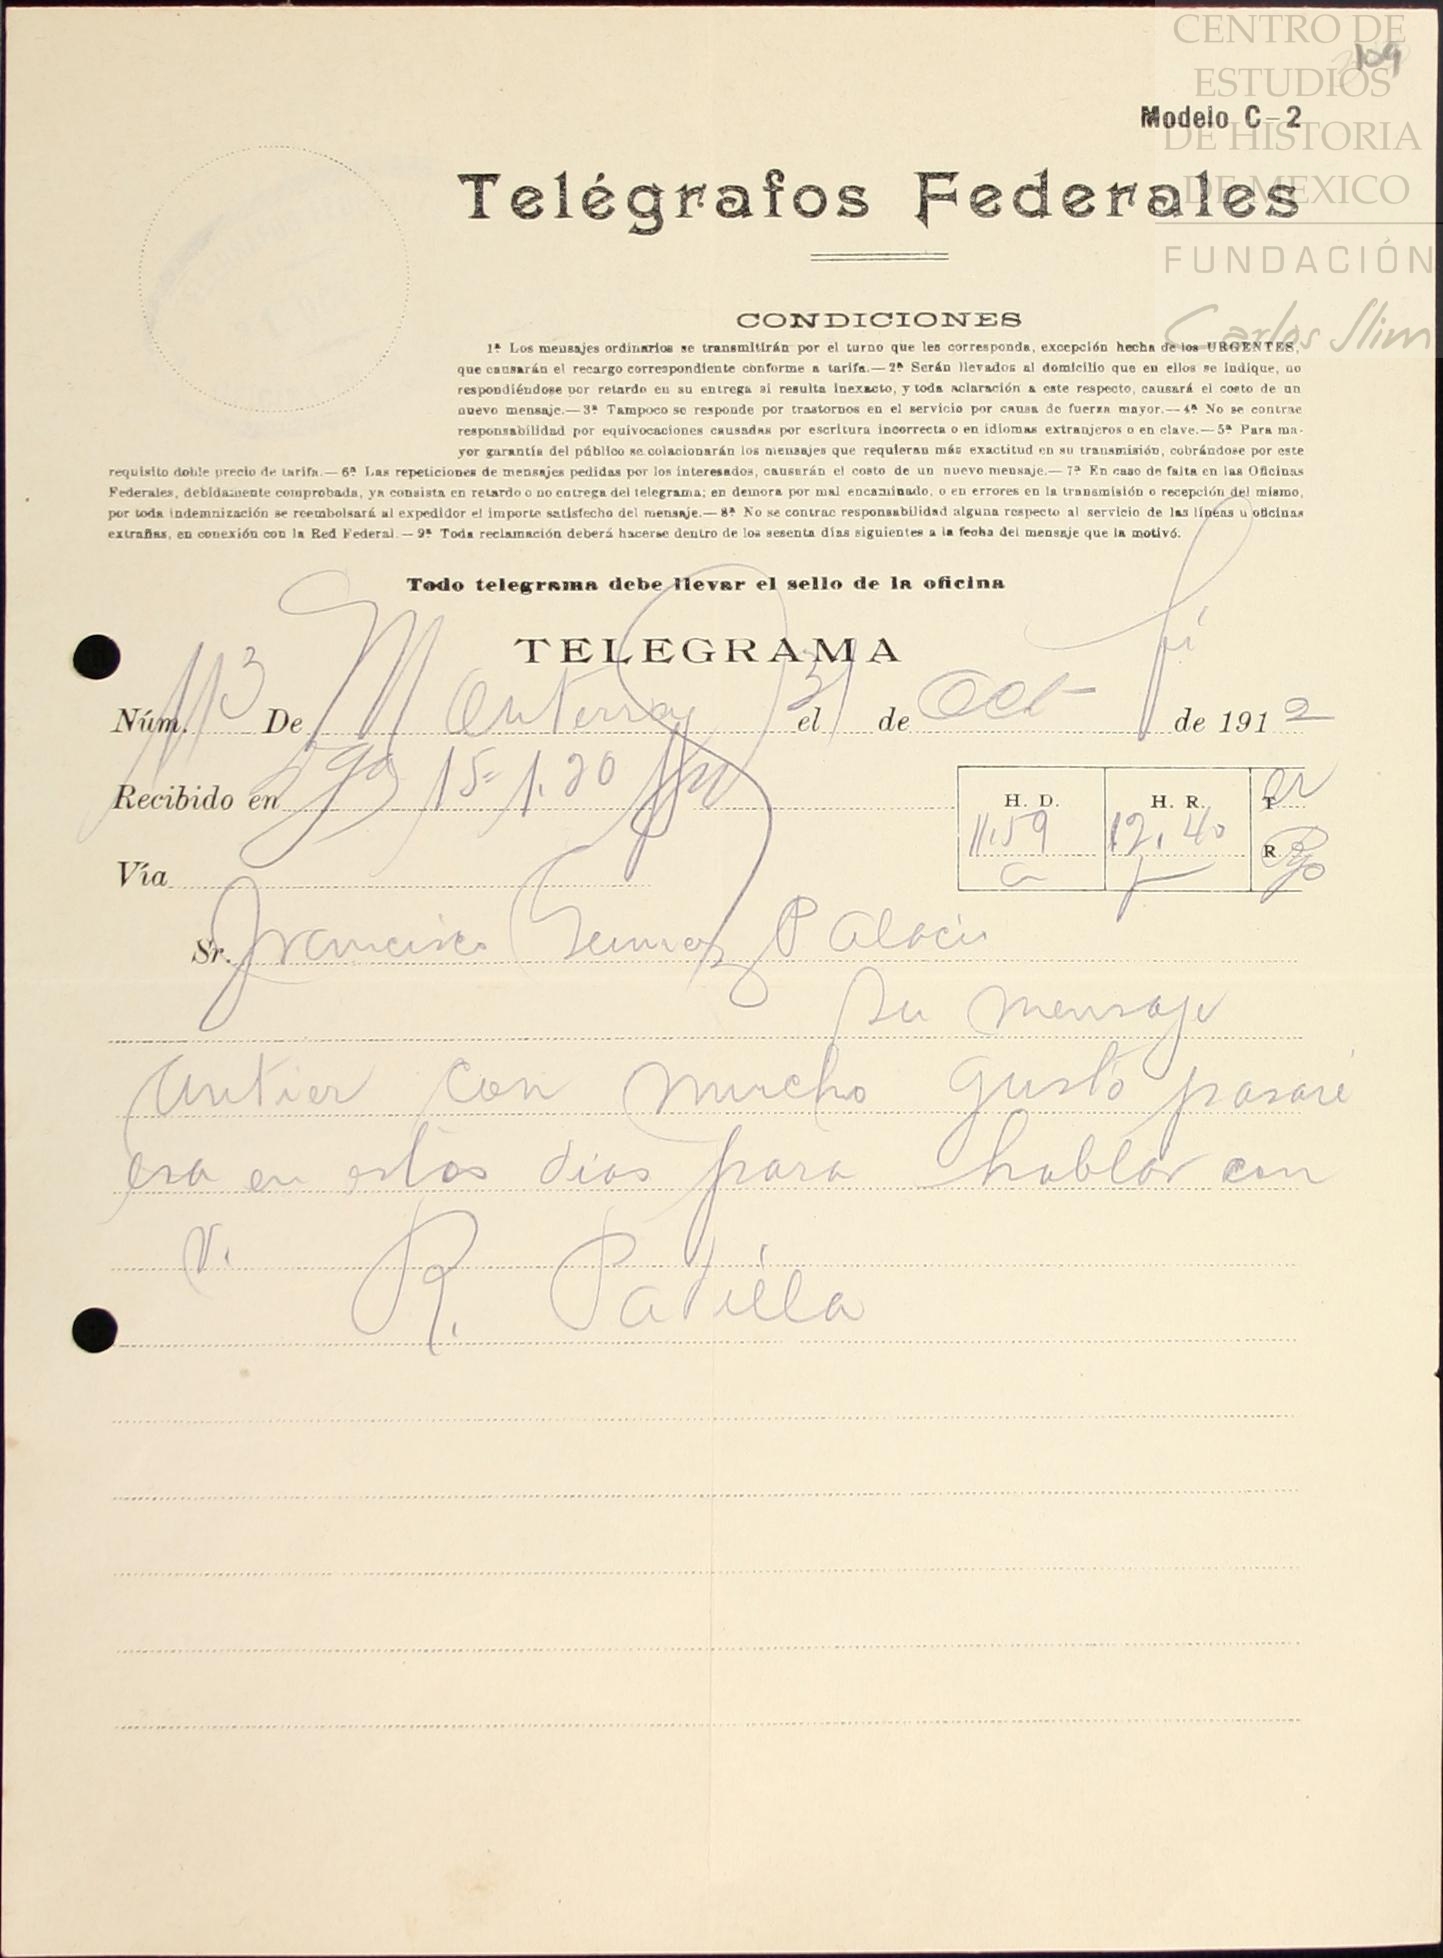 CENTRO DE
ESTUDIOS
DE HISTORIA
DE MEXICO
FUNDACIÓN
Carlos Slim
109
Modelo C-2
Telégrafos Federales
CONDICIONES
1ª Los mensajes ordinarios se transmitirán por el turno que les corresponda, excepción hecha de los URGENTES,
que causarán el recargo correspondiente conforme a tarifa.—2ª Serán llevados al domicilio que en ellos se indique, no
respondiéndose por retardo en su entrega si resulta inexacto, y toda aclaración a este respecto, causará el costo de un
nuevo mensaje.—3ª Tampoco se responde por trastornos en el servicio por causa de fuerza mayor.—4ª No se contrae
responsabilidad por equivocaciones causadas por escritura incorrecta o en idiomas extranjeros o en clave.—5ª Para ma-
yor garantía del público se colacionarán los mensajes que requieran más exactitud en su transmisión, cobrándose por este
requisito doble precio de tarifa.—6ª Las repeticiones de mensajes pedidas por los interesados, causarán el costo de un nuevo mensaje.—7ª En caso de falta en las Oficinas
Federales, debidamente comprobada, ya consista en retardo o no entrega del telegrama; en demora por mal encaminado, o en errores en la transmisión o recepción del mismo,
por toda indemnización se reembolsará al expedidor el importe satisfecho del mensaje.—8ª No se contrae responsabilidad alguna respecto al servicio de las líneas u oficinas
extrañas, en conexión con la Red Federal.—9ª Toda reclamación deberá hacerse dentro de los sesenta días siguientes a la fecha del mensaje que la motivó.
Todo telegrama debe llevar el sello de la oficina
TELEGRAMA
Núm. 113 De Monterrey el 31 de Oct de 1912
Recibido en 15- 1.20
H. D. H. R. T
11.59 12.40 R
Vía
Sr. Francisco Gomez Palacio
Su mensaje
antier con mucho gusto pasaré
esa en estos dias para hablar con
V.
R. Padilla